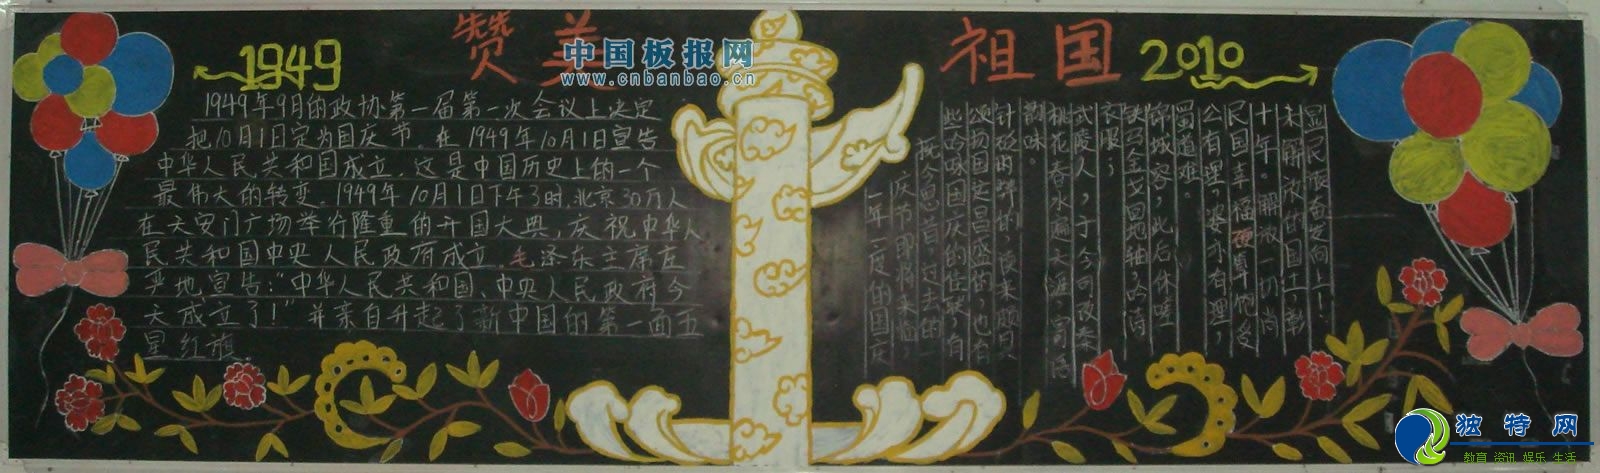 1949
赞美
祖国
2010
中国板报网
www.cnbanbao.cn
1949年9月的政协第一届第一次会议上决定
把10月1日定为国庆节。在1949年10月1日宣告
中华人民共和国成立,这是中国历史上的一个
最伟大的转变。1949年10月1日下午3时,北京30万人
在天安门广场举行隆重的开国大典,庆祝中华人
民共和国中央人民政府成立。毛泽东主席庄
严地宣告:“中华人民共和国、中央人民政府今
天成立了!”并亲自升起了新中国的第一面五
星红旗
一年一度的国庆
庆节即将来临,
抚今思昔,过去的一
些吟咏国庆的佳联,有
颂扬国运昌盛的,也有
针砭时弊的,读来颇具
韵味。
桃花春水遍天涯,寄语
武陵人,于今可改秦
衣服;
铁马金戈回地轴,吟诗
锦城客,此后休嗟
蜀道难。
公有理,婆亦有理,
民国幸福硬算他受
十年。解放一切尚
未解放的国土,勒
独特网
教育 资讯 娱乐 生活